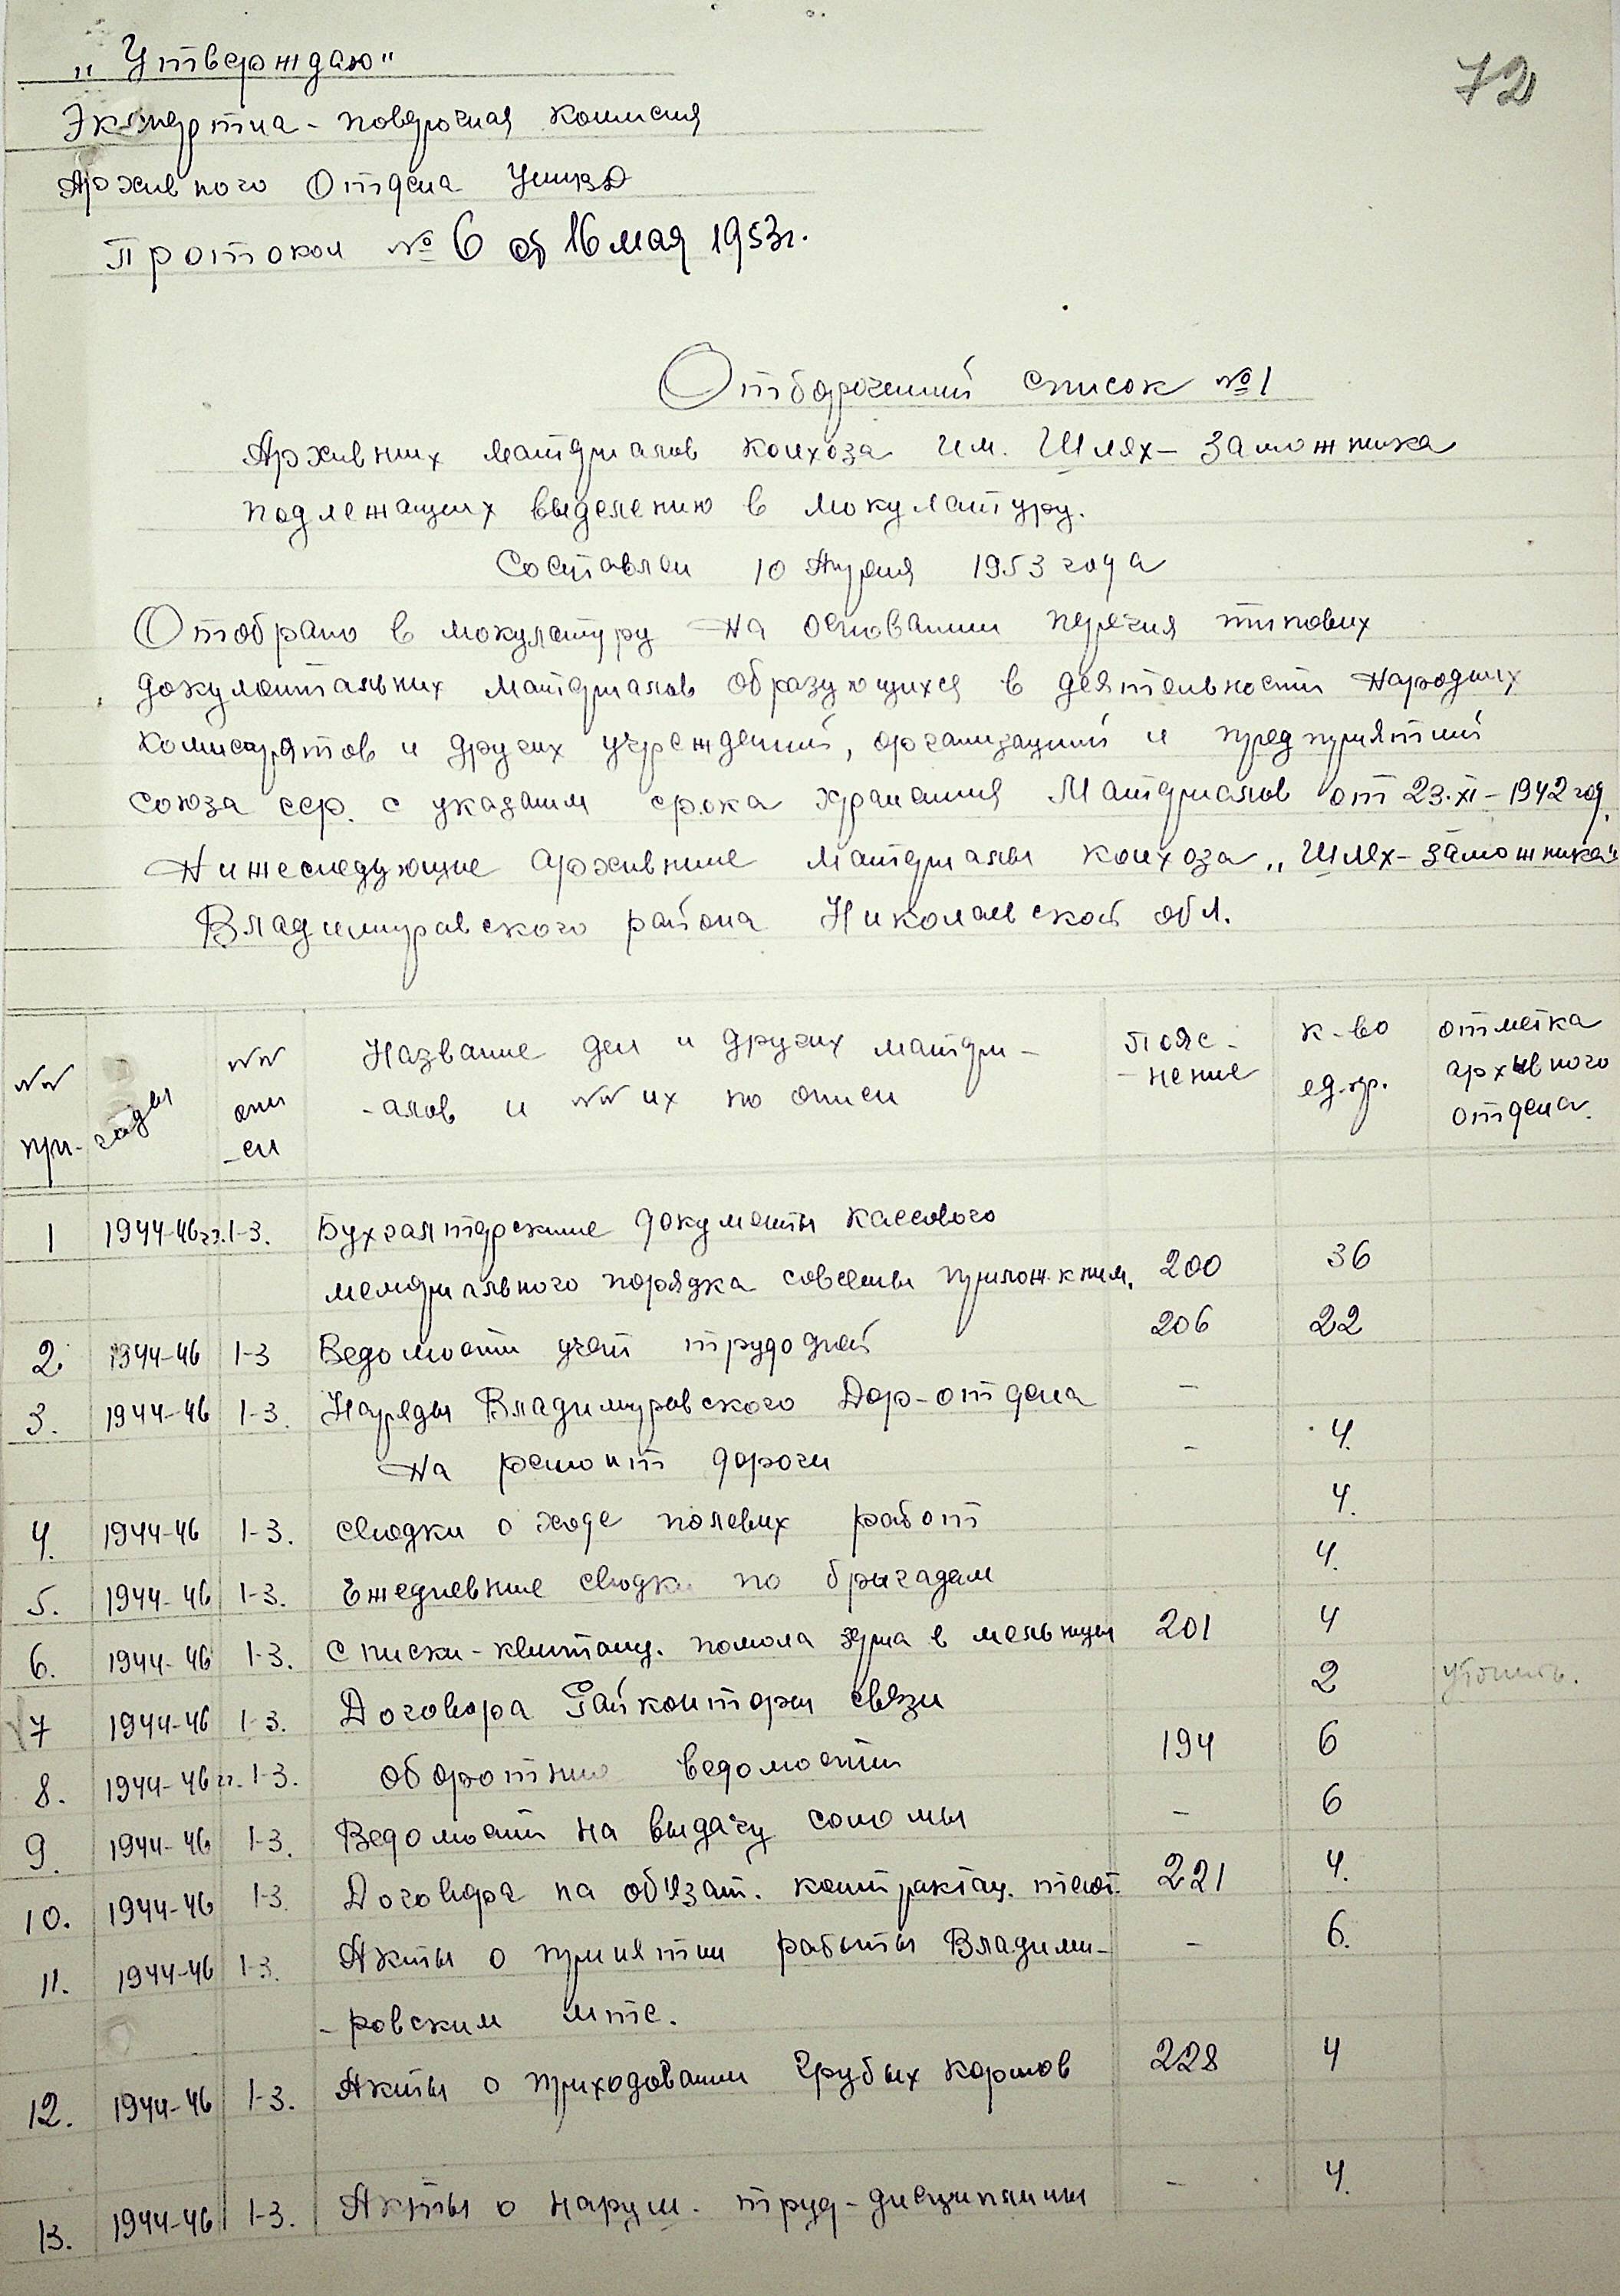 72
„Утверждаю"
Экспертна-поверочная комисия
Архивного Отдела УМВД
Протокол № 6 от 16 мая 1953г.
Отборочений список №1
Архивних материалов колхоза им. Шлях-Заможника
подлежащих выделению в мокулатуру.
Составлен 10 Апреля 1953 года
Отобрано в мокулатуру на основании перечня типових
документальних материалов образующихся в деятельности Народних
комисарятов и других учреждений, организаций и предприятий
союза сср. с указанием срока хранения материалов от 23.XI-1942 год.
Нижеследующие архивние материалы колхоза „Шлях-Заможника"
Владимировского района Николаевской обл.
№№ пп. | годы | №№ опи-си | Название дел и других матери-алов и №№ их по описи | Пояс-нение | к-во ед.хр. | отметка архивного отдела.
1 1944-46гг. 1-3. Бухгалтерские документы кассового
мемориального порядка совсеми прилож. к ним. 200 36
2. 1944-46 1-3 Ведомости учет трудодней 206 22
3. 1944-46 1-3. Наряды Владимировского Дор-отдела -
на ремонт дороги - 4.
4. 1944-46 1-3. Сводки о ходе полевих работ 4.
5. 1944-46 1-3. Ежедневние сводки по бригадам 4.
6. 1944-46 1-3. Списки-квитанц. помола зерна в мельницы 201 4
7 1944-46 1-3. Договора Райконторы связи 2
8. 1944-46 гг. 1-3. Оборотние ведомости 194 6
9. 1944-46 1-3. Ведомости на выдачу соломы - 6
10. 1944-46 1-3 Договора на об'язат. контрактац. 221 4.
11. 1944-46 1-3. Акты о принятии работы Владими- - 6.
-ровским мтс.
12. 1944-46 1-3. Акты о приходовании грубых кормов 228 4
13. 1944-46 1-3. Акты о наруш. труд-дисциплины - 4.